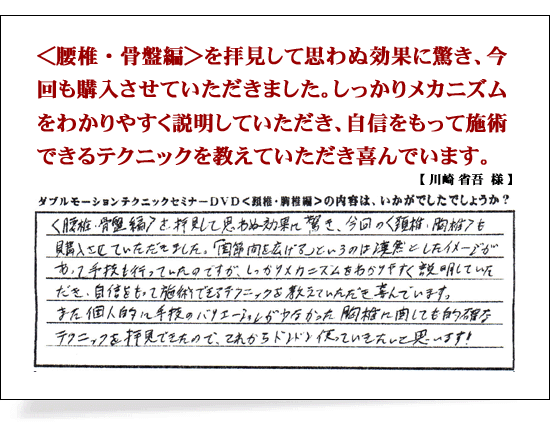 ＜腰椎・骨盤編＞を拝見して思わぬ効果に驚き、今
回も購入させていただきました。しっかりメカニズム
をわかりやすく説明していただき、自信をもって施術
できるテクニックを教えていただき喜んでいます。
【 川崎 省吾 様 】
ダブルモーションテクニックセミナーDVD＜頚椎・胸椎編＞の内容は、いかがでしたでしょうか？
〈腰椎・骨盤編〉を拝見して思わぬ効果に驚き、今回の〈頚椎・胸椎〉も
購入させていただきました。「関節間を広げる」というのは漠然としたイメージが
あって手技も行っていたのですが、しっかりメカニズムをわかりやすく説明していた
だき、自信をもって施術できるテクニックを教えていただき喜んでいます。
また個人的に手技のバリエーションが少なかった胸椎に関しても的確な
テクニックを拝見できたので、これからドンドン使っていきたいと思います!